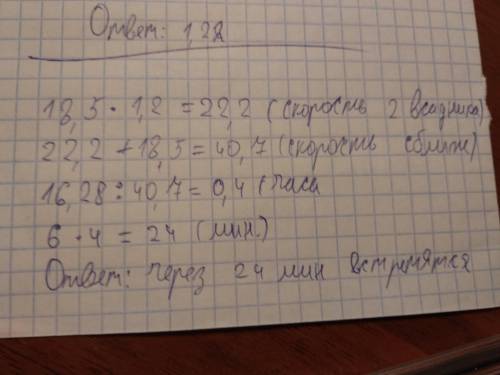 Ответ: 1,2
18,5 · 1,2 = 22,2 (скорость 2 всадника)
22,2 + 18,5 = 40,7 (скорость сближ)
16,28 : 40,7 = 0,4 (часа
6 · 4 = 24 (мин.)
Ответ: через 24 мин встретятся